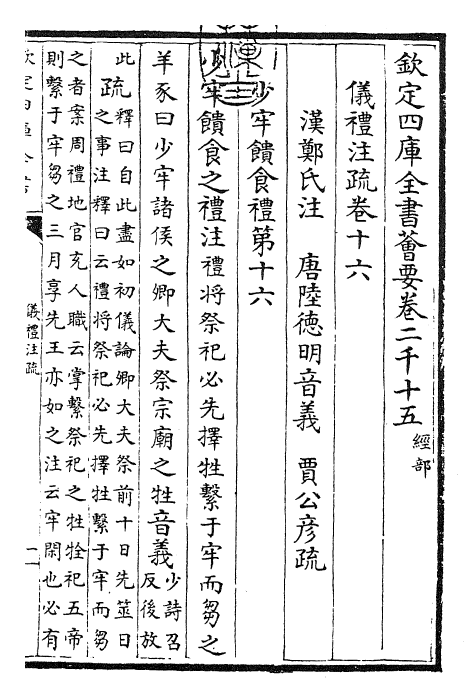 欽定四庫全書薈要卷二千十五 經部
儀禮注疏卷十六
漢鄭氏注 唐陸德明音義 賈公彥疏
少牢饋食禮第十六
少牢饋食之禮注禮將祭祀必先擇牲繫于牢而芻之
羊豕曰少牢諸侯之卿大夫祭宗廟之牲音義少詩召
反後放
此疏釋曰自此盡如初儀論卿大夫祭前十日先筮日
之事注釋曰云禮將祭祀必先擇牲繫于牢而芻
之者案周禮地官充人職云掌繫祭祀之牲牷祀五帝
則繫于牢芻之三月享先王亦如之注云牢閑也必有
欽定四庫全書
儀禮注疏
一